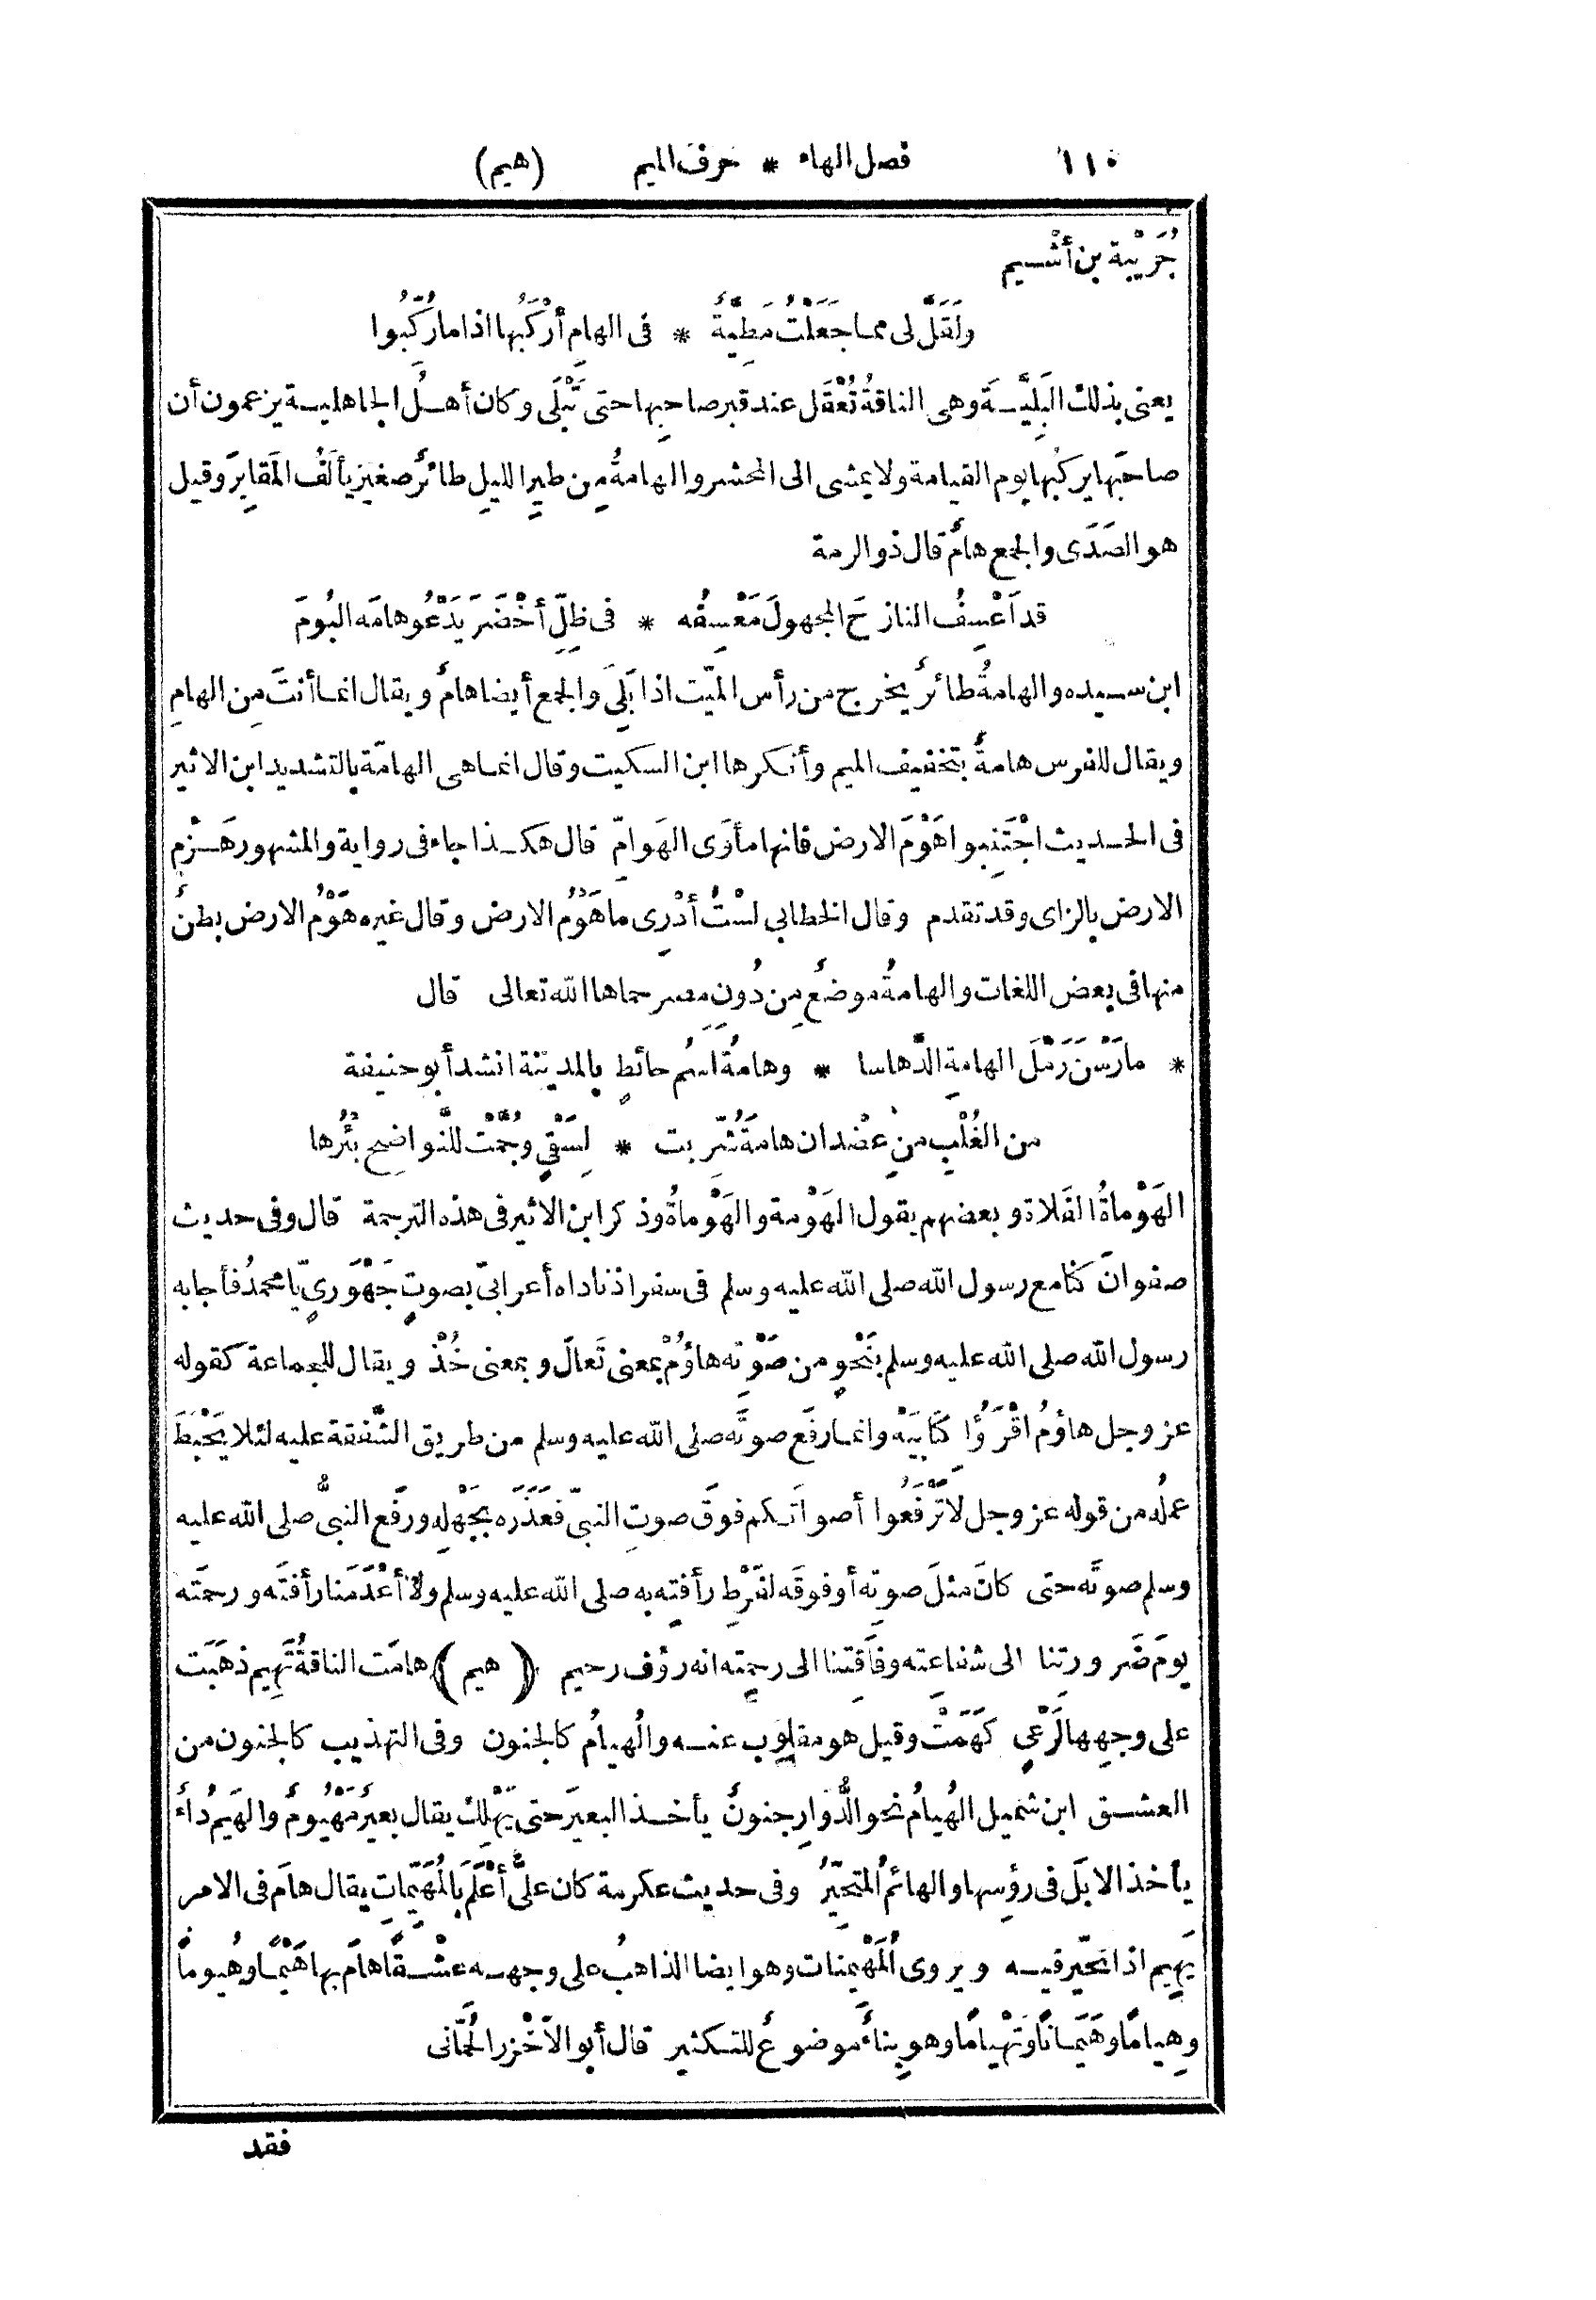 ١١٠ فصل الهاء * حرف الميم (هيم)
جُرَيْبة بن أَشْيم
ولَقَلَّ لى مما جَعَلْتُ مَطِيَّةً * فى الهامِ أَرْكَبُها اذا مارُكِّبُوا
يعنى بذلك البَلِيَّةَ وهى الناقةُ تُعْقَل عند قبر صاحبِها حتى تَبْلَى وكان أهلُ الجاهلية يزعمون أن
صاحبَها يركبُها يوم القيامة ولا يمشى الى المحشر والهامةُ مِن طيرِ الليلِ طائرٌ صغير يألَفُ المَقابِرَ وقيل
هو الصَدَى والجمع هامٌ قال ذو الرمة
قد اَعْسِفُ النازِحَ المجهولَ مَعْسِفُه * فى ظِلِّ أَخْضَرَ يَدْعُو هامَه البُومَ
ابن سيده والهامةُ طائرٌ يخرج من رأس الميّت اذا بَلِىَ والجمع أيضا هامٌ ويقال انما أنتَ مِن الهامِ
ويقال للفرس هامةٌ بتخفيف الميم وأنكرها ابن السكيت وقال انما هى الهامّة بالتشديد ابن الاثير
فى الحديث اجْتَنِبوا هَوْمَ الارض فانها مأوَى الهَوامِّ قال هكذا جاء فى رواية والمشهور هَزْم
الارض بالزاى وقد تقدم وقال الخطابى لسْتُ أدْرِى ما هَوْمُ الارض وقال غيره هَوْمُ الارض بطنٌ
منها فى بعض اللغات والهامةُ موضعٌ مِن دُونِ مِصر حماها الله تعالى قال
* مارَسْنَ رَمْلَ الهامةِ الدَّهاسا * وهامةُ اسمُ حائطٍ بالمدينة انشد أبو حنيفة
من الغُلْبِ من عِضْدان هامةَ شُرِّبت * لِسَقْىٍ وجُمَّتْ للنَّواضِح بئْرُها
الهَوْماةُ الفَلاة وبعضهم يقول الهَوْمة والهَوْماةُ وذكر ابن الاثير فى هذه الترجمة قال وفى حديث
صفوان كنّا مع رسول الله صلى الله عليه وسلم فى سفر اذ ناداه أعرابىّ بصوتٍ جَهْوَرِىٍّ يا محمدُ فأجابه
رسول الله صلى الله عليه وسلم بنَحْوٍ من صَوْتِه هاؤُمْ بمعنى تَعالَ وبمعنى خُذْ ويقال للجماعة كقوله
عز وجل هاؤُمُ اقْرَؤُا كِتابِيَهْ وانما رفَع صوتَه صلى الله عليه وسلم من طريق الشَّفقة عليه لئلا يَحْبَطَ
عملُه من قوله عز وجل لا تَرْفَعُوا أصواتَكم فوقَ صوتِ النبىّ فعَذَرَه بجَهْلِه ورفَع النبىُّ صلى الله عليه
وسلم صوتَه حتى كانَ مثلَ صوتِه أو فوقَه لفَرْطِ رأفتِه به صلى الله عليه وسلم ولا أعْدَمَنا رأفتَه ورحمَته
يومَ ضَرورتِنا الى شفاعتِه وفاقَتِنا الى رحمتِه انه رؤف رحيم (هيم) هامَت الناقةُ تَهِيم ذهَبَت
على وجهِها لرَعْىٍ كهَمَتْ وقيل هو مقلوب عنه والهُيامُ كالجنون وفى التهذيب كالجنون من
العشق ابن شميل الهُيامُ نحو الدُّوارِ جنونٌ يأخذ البعيرَ حتى يَهْلِك يقال بعيرٌ مَهْيُومٌ والهَيمُ داءٌ
يأخذ الابلَ فى رؤُسِها والهائمُ المتحيِّرُ وفى حديث عكرمة كان علىٌّ أعْلَمَ بالمُهَيِّماتِ يقال هامَ فى الامر
يَهِيم اذا تحيّر فيه ويروى المُهَيْمِنات وهو ايضا الذاهبُ على وجهه عشْقًا هامَ بها هَيْمًا وهُيوماً
وهِيامًا وهَيَمانًا وتَهْيامًا وهو بِناءٌ موضوعٌ للتكثير قال أبو الاَخْزر الحُمّانى
فقد